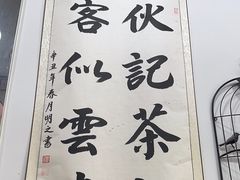 伙記茶
客似雲
辛丑年春月明之書